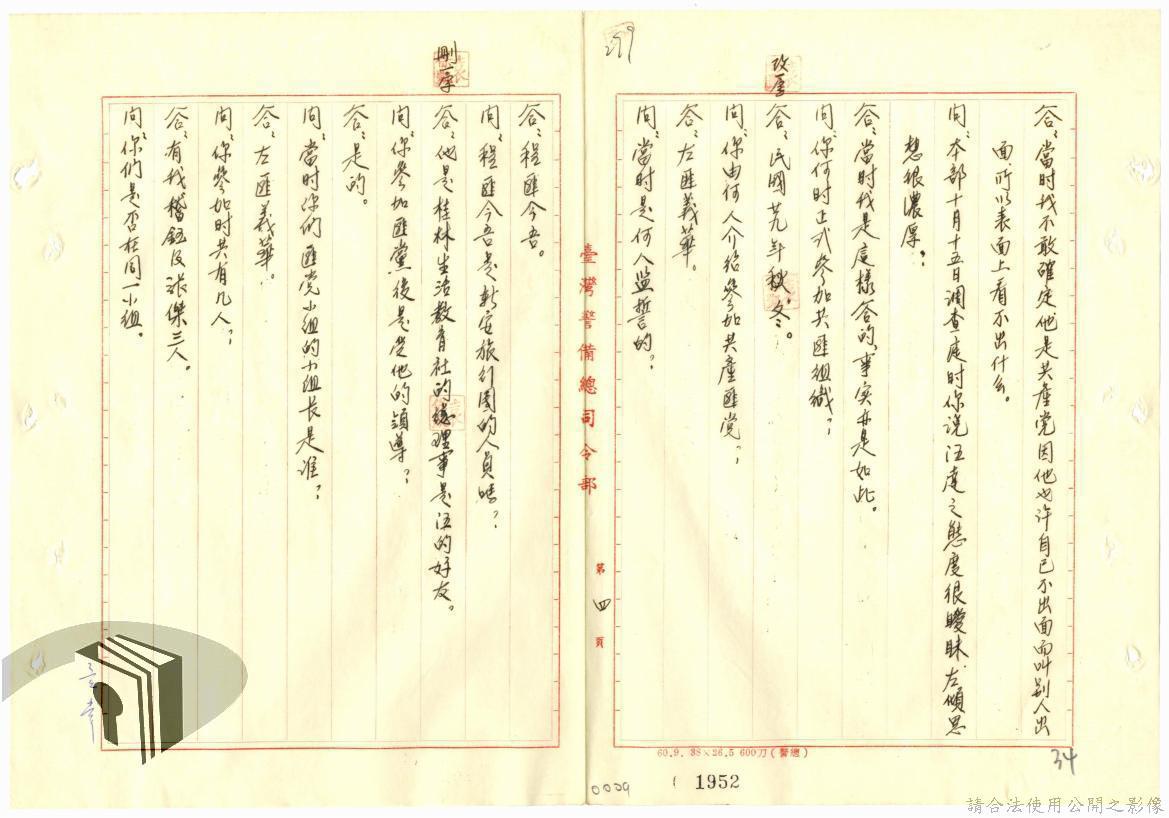 299
改一字
答：當时我不敢確定他是共產党因他也许自己不出面而叫别人出
面所以表面上看不出什么。
问：本部十月十五日调查庭时你说汪達之態度很曖昧左傾思
想很濃厚？
答：當时我是這樣答的，事实亦是如此。
问：你何时正式參加共匪組織？
答：民國廿九年秋、冬。
问：你由何人介紹參加共產匪党？
答：左匪義華。
问：當时是何人监誓的？
臺灣警備總司令部
第四頁
刪一字
答：程匪今吾。
问：程匪今吾是新安旅行團的人員嗎？
答：他是桂林生活教育社的理事是汪的好友。
问：你參加匪黨後是受他的領導？
答：是的。
问：當时你们匪党小組的小组长是谁？
答：左匪義華。
问：你參加时共有几人？
答：有我稽鈺及张傑三人。
问：你们是否在同一小組。
60.9. 38×26.5 600刀(警總)
34
0029
1952
請合法使用公開之影像